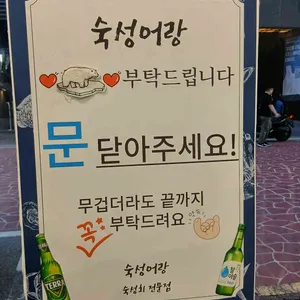 숙성어랑
부탁드립니다
문 닫아주세요!
무겁더라도 끝까지
꼭 부탁드려요
숙성어랑
숙성회 전문점
TERRA